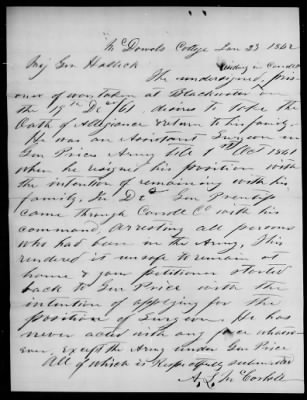 McDowels College Jan 23 1862
Maj Gen Halleck
residing in Carroll Co
The undersigned, pris
oner of war taken at Blackwater on
the 19th Dec /61, desires to take the
Oath of Allegiance & return to his family.
He was an Assistant Surgeon in
Gen Prices Army till 1st Oct 1861
when he resigned his position with
the intention of remaining with his
family. In Dec Gen Prentiss
came through Carroll Co with his
command, arresting all persons
who had been in the Army, This
rendered it unsafe to remain at
home & your petitioner started
back to Gen Price with the
intention of applying for the
position of Surgeon. He has
never acted with any force whatso-
ever, except the Army under Gen Price
All of which is Respectfully submitted
A. L.